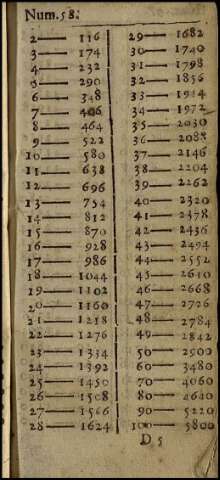 Num. 58.
2— 116
3— 174
4— 232
5— 290
6— 348
7— 406
8— 464
9— 522
10— 580
11— 638
12— 696
13— 754
14— 812
15— 870
16— 928
17— 986
18— 1044
19— 1102
20— 1160
21— 1218
22— 1276
23— 1334
24— 1392
25— 1450
26— 1508
27— 1566
28— 1624
29— 1682
30— 1740
31— 1798
32— 1856
33— 1914
34— 1972
35— 2030
36— 2088
37— 2146
38— 2204
39— 2262
40— 2320
41— 2378
42— 2436
43— 2494
44— 2552
45— 2610
46— 2668
47— 2726
48— 2784
49— 2842
50— 2900
60— 3480
70— 4060
80— 4640
90— 5220
100— 5800
D 5